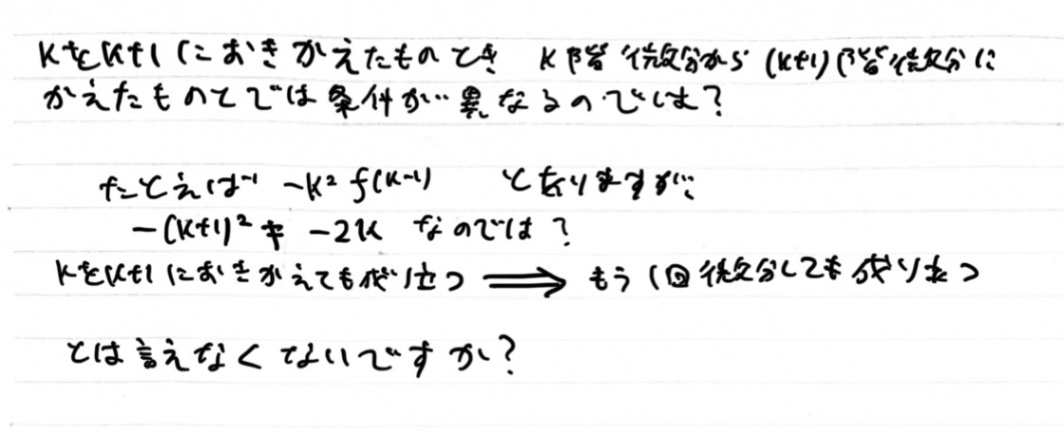 kをk+1におきかえたものとき k階微分から(k+1)階微分に
かえたものとでは条件が異なるのでは?
たとえば -k² f(k-1) となりますが、
-(k+1)² ≠ -2k なのでは?
kをk+1におきかえても成り立つ ⟹ もう1回微分しても成り立つ
とは言えなくてないですか?